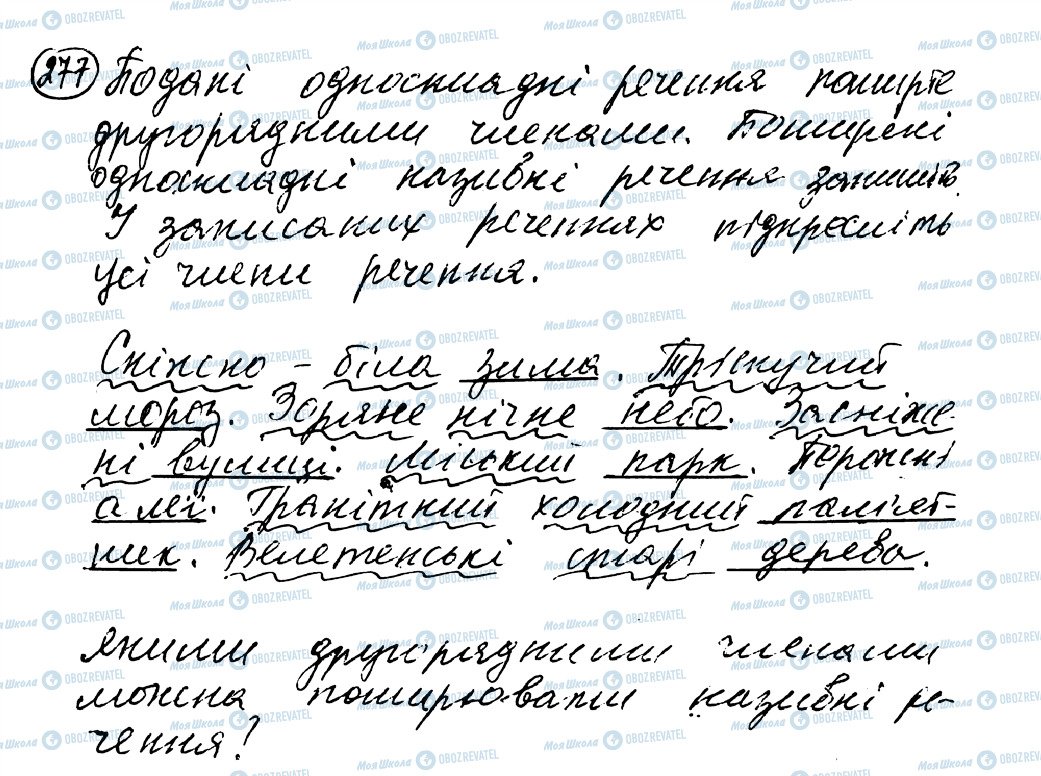 277 Подані односкладні речення поширте
другорядними членами. Поширені
односкладні називні речення запишіть.
У записаних реченнях підкресліть
усі члени речення.
Сніжно - біла зима. Тріскучий
мороз. Зоряне нічне небо. Засніже-
ні вулиці. Міський парк. Порожні
алеї. Гранітний холодний памʼят-
ник. Велетенські старі дерева.
Якими другорядними членами
можна поширювати називні ре-
чення?